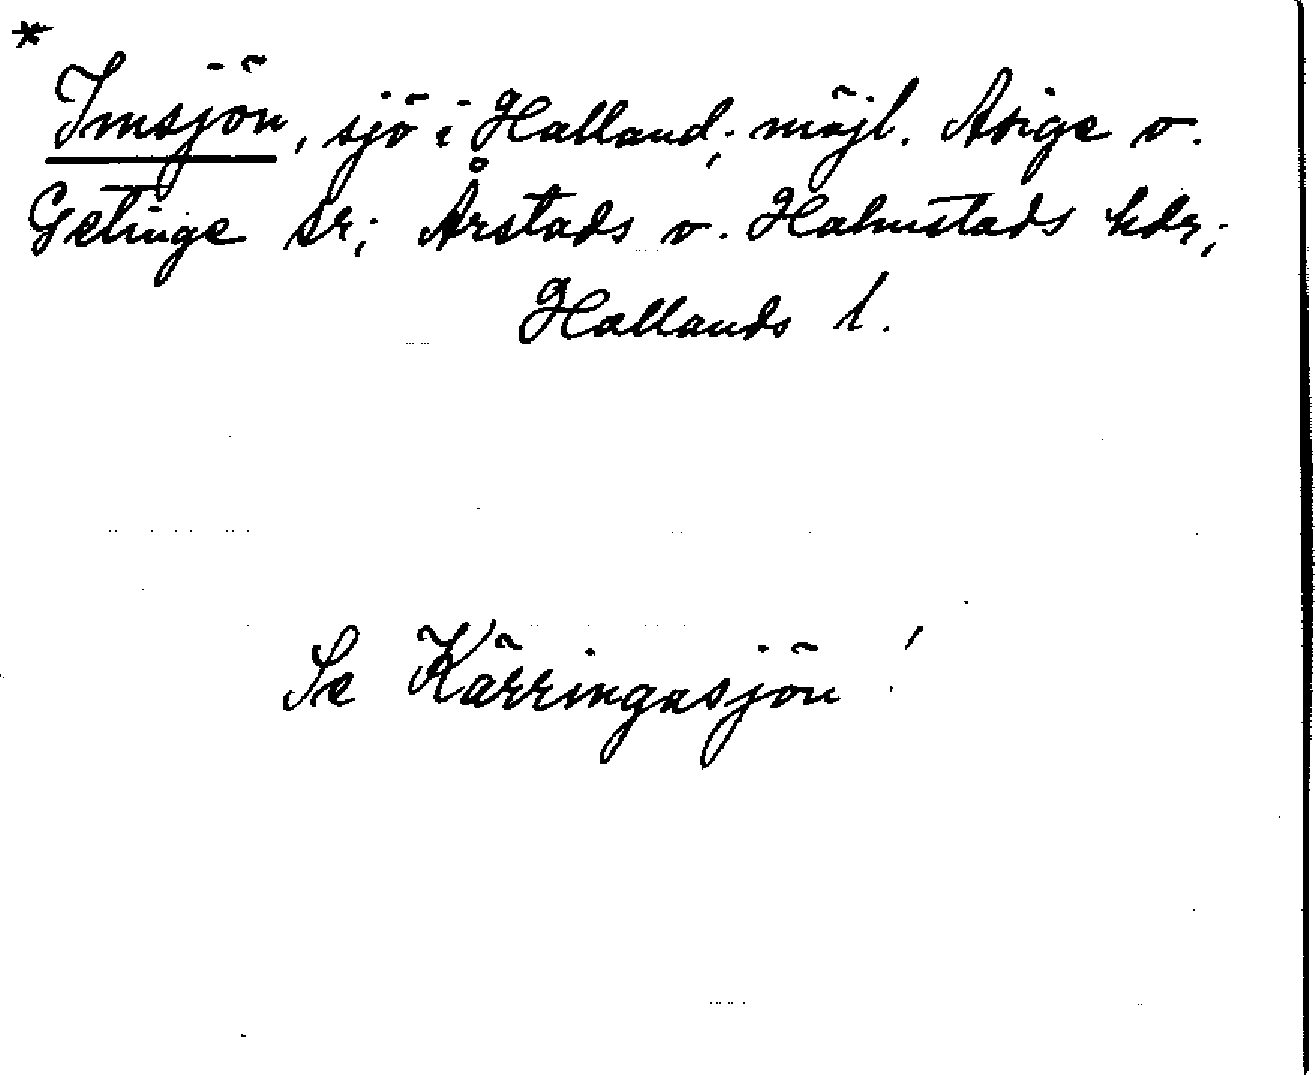 *
Imsjön, sjö i Halland; möjl. Asige o.
Getinge sr; Årstads o. Halmstads hdr;
Hallands l.
Se Kärringasjön!